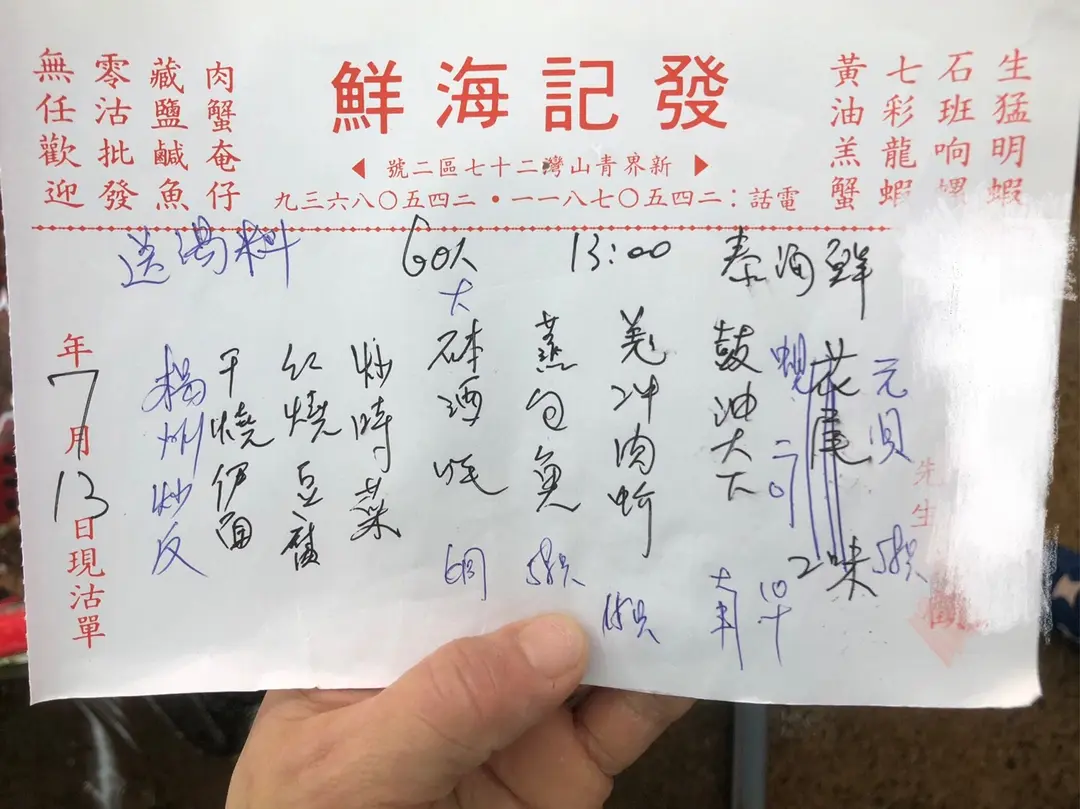 發記海鮮
新界青山灣二十七區二號
電話：二四五〇七八一一・二四五〇八六三九
生猛明蝦
石班响螺
七彩龍蝦
黃油羔蟹
肉蟹奄仔
藏鹽鹹魚
零沽批發
無任歡迎
泰海鮮
13:00
送湯料
先生
元貝 5隻
花尾 2味
蜆
鼓油大下
羌冲肉蚧
蒸旬魚 5隻
大砵酒吔
炒時菜
红燒豆腐
干燒伊面
楊州炒反
年7月13日現沽單